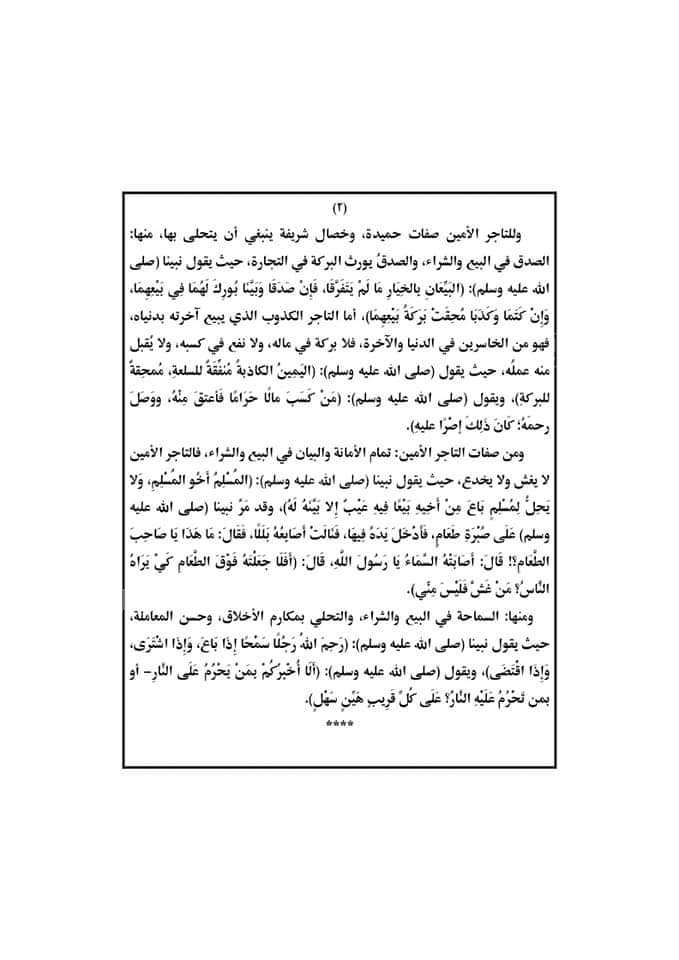 (٢)
وللتاجر الأمين صفات حميدة، وخصال شريفة ينبغي أن يتحلى بها، منها:
الصدق في البيع والشراء، والصدقُ يورث البركة في التجارة، حيث يقول نبينا (صلى
الله عليه وسلم): (البَيِّعَانِ بالخِيَارِ مَا لَمْ يَتَفَرَّقَا، فَإِنْ صَدَقَا وَبَيَّنَا بُورِكَ لَهُمَا فِي بَيْعِهِمَا،
وَإِنْ كَتَمَا وَكَذَبَا مُحِقَتْ بَرَكَةُ بَيْعِهِمَا)، أما التاجر الكذوب الذي يبيع آخرته بدنياه،
فهو من الخاسرين في الدنيا والآخرة، فلا بركة في ماله، ولا نفع في كسبه، ولا يُقبل
منه عملُه، حيث يقول (صلى الله عليه وسلم): (اليَمِينُ الكاذبةُ مُنفِّقَةٌ للسلعةِ، مُمحِقةٌ
للبركةِ)، ويقول (صلى الله عليه وسلم): (مَنْ كَسَبَ مالًا حَرَامًا فَأعتقَ مِنْهُ، ووَصَلَ
رحمَهُ؛ كانَ ذَلِكَ إصْرًا عليهِ).
ومن صفات التاجر الأمين: تمام الأمانة والبيان في البيع والشراء، فالتاجر الأمين
لا يغش ولا يخدع، حيث يقول نبينا (صلى الله عليه وسلم): (المُسْلِمُ أَخُو المُسْلِمِ، وَلا
يَحِلُّ لِمُسْلِمٍ بَاعَ مِنْ أَخِيهِ بَيْعًا فِيهِ عَيْبٌ إِلا بَيَّنَهُ لَهُ)، وقد مَرَّ نبينا (صلى الله عليه
وسلم) عَلَى صُبْرَةِ طَعَامٍ، فَأَدْخَلَ يَدَهُ فِيهَا، فَنَالَتْ أَصَابِعُهُ بَلَلًا، فَقَالَ: مَا هَذَا يَا صَاحِبَ
الطَّعَامِ؟! قَالَ: أَصَابَتْهُ السَّمَاءُ يَا رَسُولَ اللَّهِ، قَالَ: (أَفَلَا جَعَلْتَهُ فَوْقَ الطَّعَامِ كَيْ يَرَاهُ
النَّاسُ؟ مَنْ غَشَّ فَلَيْسَ مِنِّي).
ومنها: السماحة في البيع والشراء، والتحلي بمكارم الأخلاق، وحسن المعاملة،
حيث يقول نبينا (صلى الله عليه وسلم): (رَحِمَ اللهُ رَجُلًا سَمْحًا إِذَا بَاعَ، وَإِذَا اشْتَرَى،
وَإِذَا اقْتَضَى)، ويقول (صلى الله عليه وسلم): (أَلَا أُخْبِرُكُمْ بِمَنْ يَحْرُمُ عَلَى النَّارِ– أو
بمن تَحْرُمُ عَلَيْهِ النَّارُ؟ عَلَى كُلِّ قَرِيبٍ هَيِّنٍ سَهْلٍ).
****